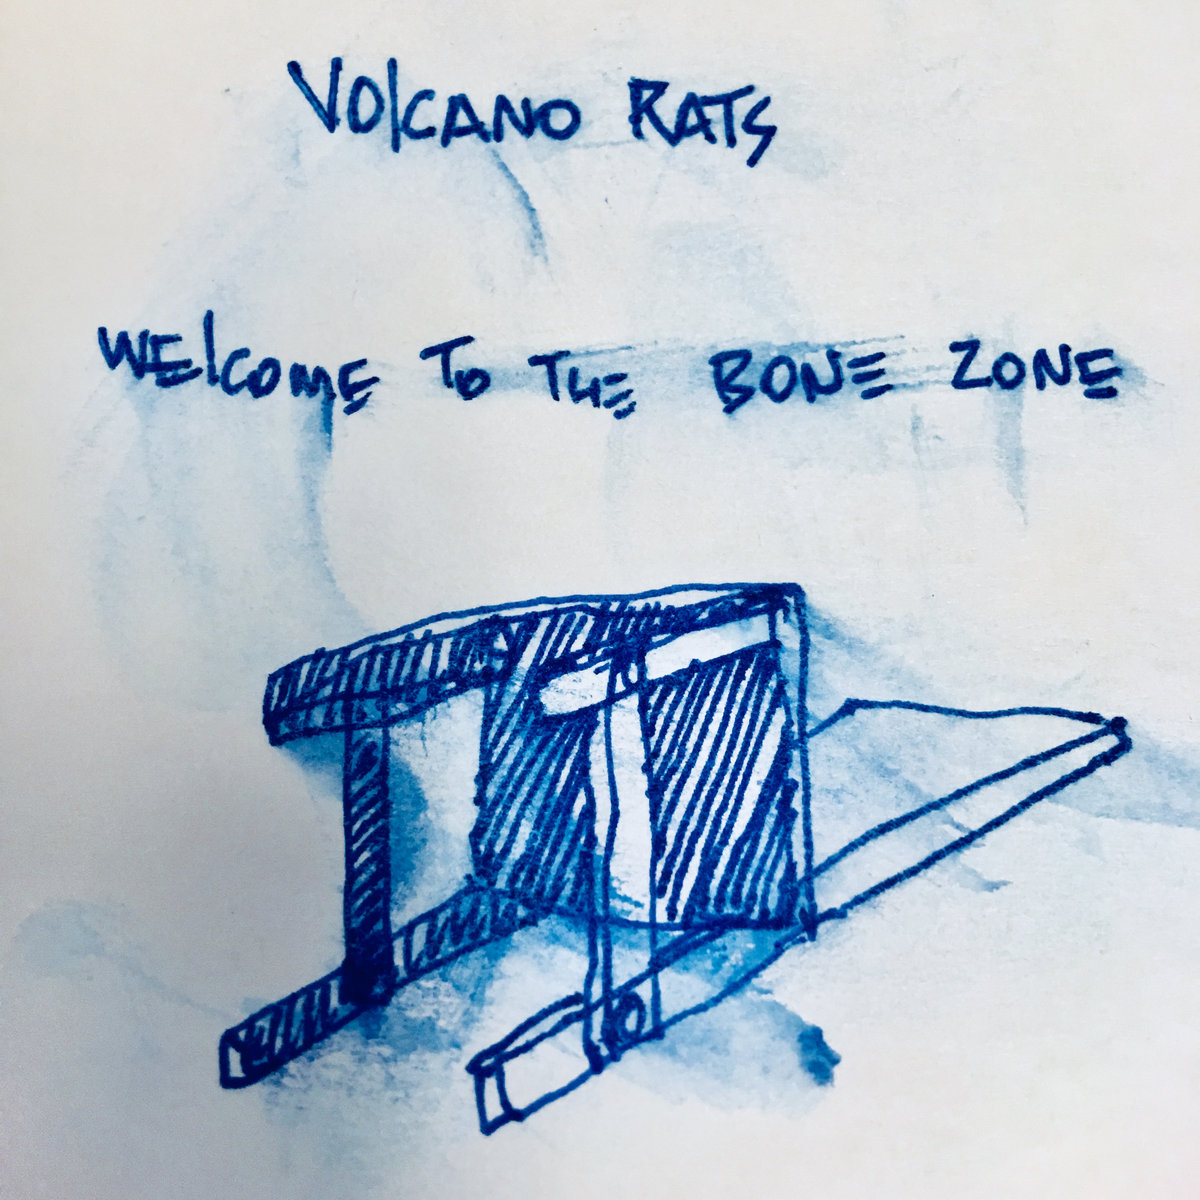 VOLCANO RATS
WELCOME TO THE BONE ZONE